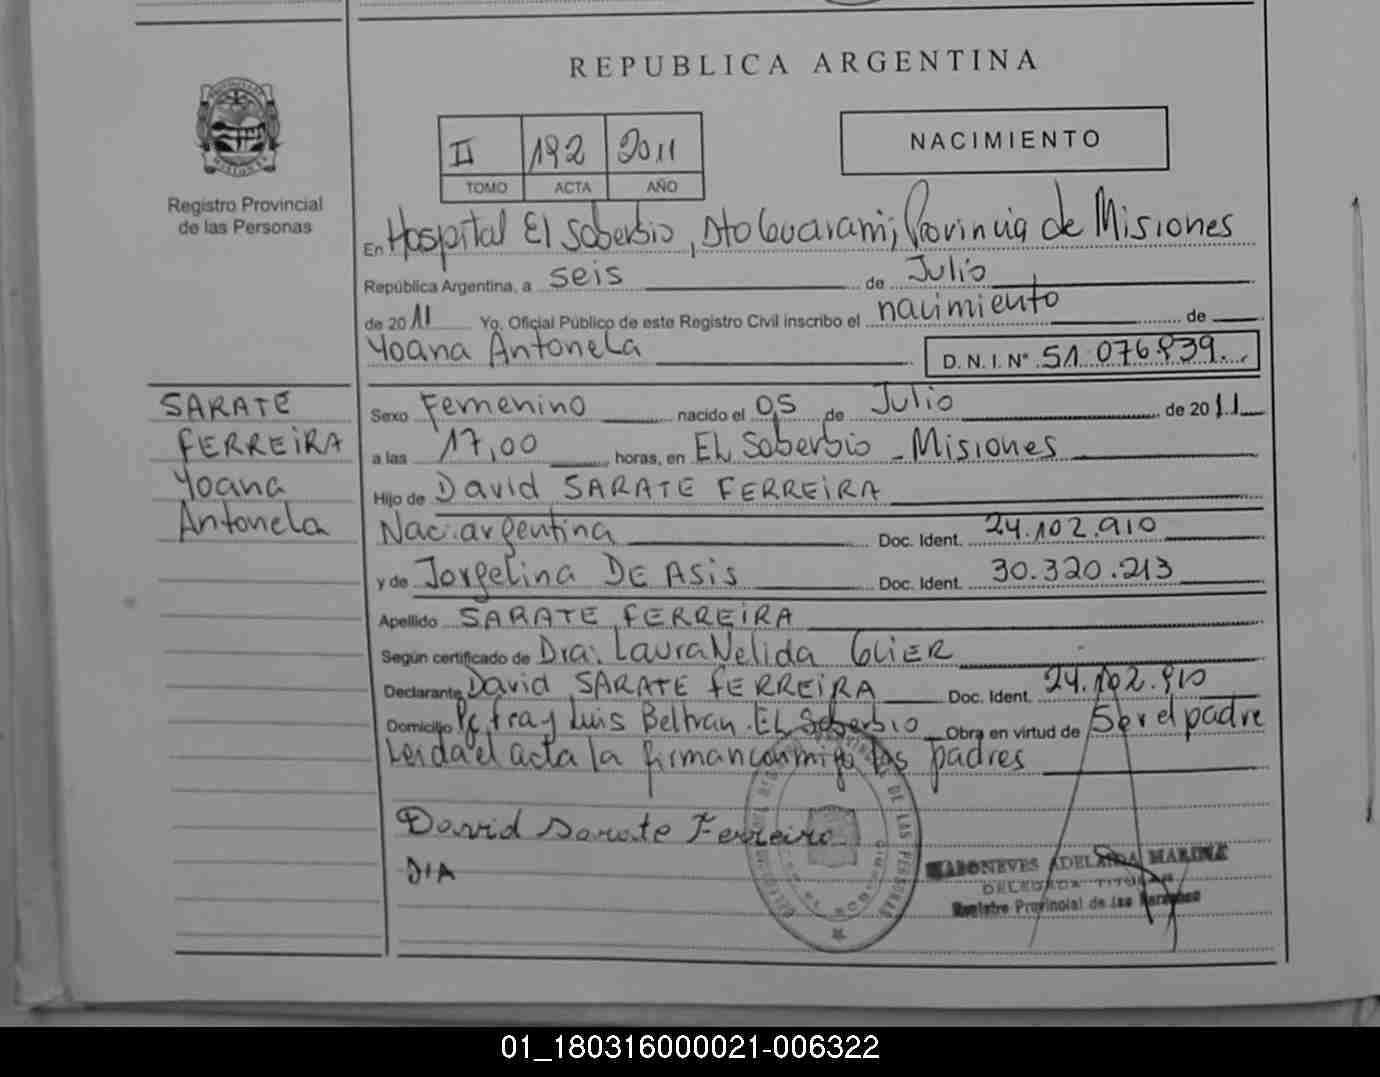 REPUBLICA ARGENTINA
II 192 2011
TOMO ACTA AÑO
NACIMIENTO
Registro Provincial
de las Personas
En Hospital El Soberbio, Dto Guarani, Provincia de Misiones
República Argentina, a seis de Julio
de 2011 Yo, Oficial Público de este Registro Civil inscribo el nacimiento de
Yoana Antonela D.N.I. N° 51.076.839
SARATE
FERREIRA
Yoana
Antonela
Sexo Femenino nacido el 05 de Julio de 2011
a las 17,00 horas, en EL Soberbio - Misiones
Hijo de David SARATE FERREIRA
Nac. argentina Doc. Ident. 24.102.910
y de Jorgelina DE ASIS Doc. Ident. 30.320.213
Apellido SARATE FERREIRA
Según certificado de Dra. Laura Nelida GLIER
Declarante David SARATE FERREIRA Doc. Ident. 24.102.910
Domicilio Pje fray Luis Beltran. EL Soberbio Obra en virtud de Ser el padre
Leida el acta la firman conmigo los padres
David Sarate Ferreira
DIA
ADELAIDA MARINA
DELEGADA TITULAR
Registro Provincial de las Personas
01_180316000021-006322